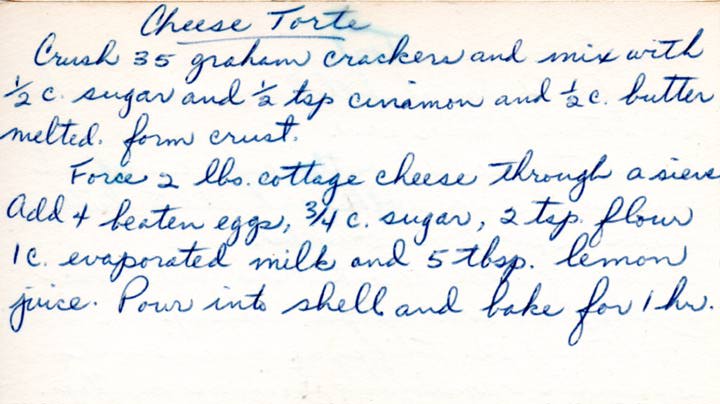 Cheese Torte
Crush 35 graham crackers and mix with
½ c. sugar and ½ tsp cinamon and ½ c. butter
melted. form crust.
Force 2 lbs. cottage cheese through a sieve
Add 4 beaten eggs, ¾ c. sugar, 2 tsp. flour
1 c. evaporated milk and 5 tbsp. lemon
juice. Pour into shell and bake for 1 hr.